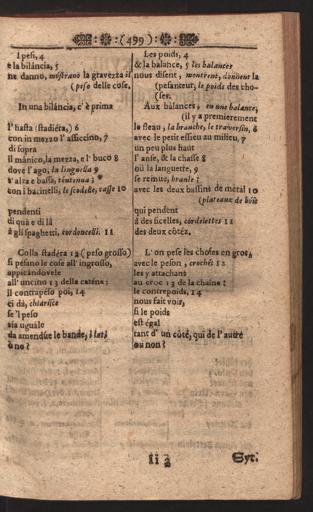 (499)
I pesi, 4
e la biláncia, 5
ne danno, mostránó la gravezza
(peso delle cose.
In una biláncia, c'è prima
l'hasta (stadiéra,) 6
con in mezzo l'assiccino, 7
di sopra
il mánico, la mezza, e l'buco 8
dove l'ago, la linguella 9
s'alza e bassa,
con i bacinelli, le scodelle, 10
pendenti
di quà e di là
à gli spaghetti, cordoncelli. 11
Colla stadéra 12 (peso grosso)
si pésano le cose all'ingrosso,
appicándovele
all'uncino 13 della caténa;
il contrapéso poi, 14
ci dà, chiarisce
se'l peso
sia uguále
da amendúe le bande, i lati,
ò no?
Les poids, 4
& la balance, 5 les balances
nous disent, montrent, donnent la
(pesanteur, le poids des cho-
(ses.
Aux balances, en une balance,
(il y a premierement
le fleau, la branche, le traversin, 6
avec le petit essieu au milieu, 7
un peu plus haut
l'anse, & la chasse 8
où la languette, 9
se remue, branle:
avec les deux bassins de métal 10
(plateaux de bois
qui pendent
à des ficelles, cordelettes 11
des deux côtéz.
L'on pese les choses en gros,
avec le peson, crochés 12
les y attachant
au croc 13 de la chaine:
le contrepoids, 14
nous fait voir,
si le poids
est égal
tant d'un côté, qui de l'autre
ou non?
Ii 2
Syt.